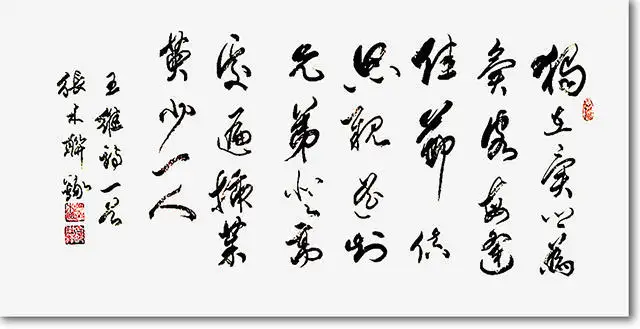 獨在異鄉為
異客每逢
佳節倍
思親遙知
兄弟登高
處遍插茱
萸少一人
王維詩一首
張木聯